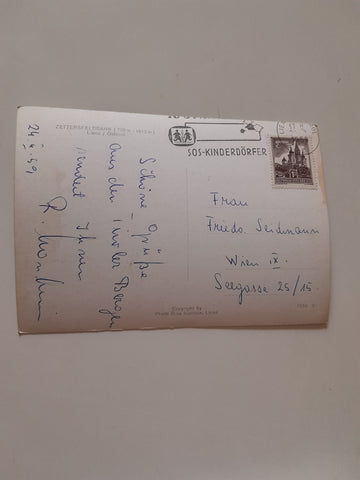 ZETTERSFELDBAHN
Lienz / Osttirol
24.
59
Schöne Grüße
aus den Tiroler Bergen
sendet Ihnen
SOS-KINDERDÖRFER
Frau
Frieda Seidmann
Wien IX.
Seegasse 25/15.
Copyright by
Lienz